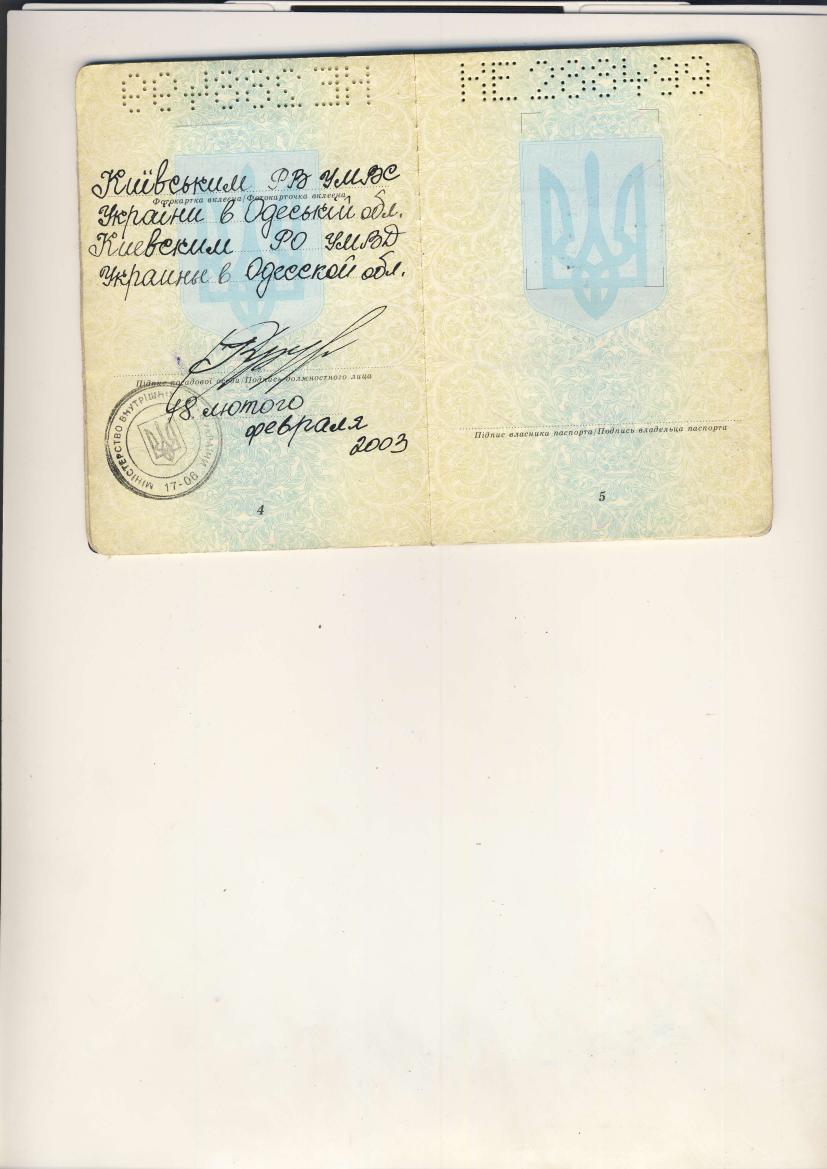 КЕ 288499
Київським РВ УМВС
Фотокартка вклеєна/Фотокарточка вклеена
України в Одеській обл.
Киевским РО УМВД
Украины в Одесской обл.
Підпис посадової особи/Подпись должностного лица
18 лютого
февраля
2003
МІНІСТЕРСТВО ВНУТРІШНІХ УКРАЇНИ
17-06
4
КЕ 288499
Підпис власника паспорта/Подпись владельца паспорта
5